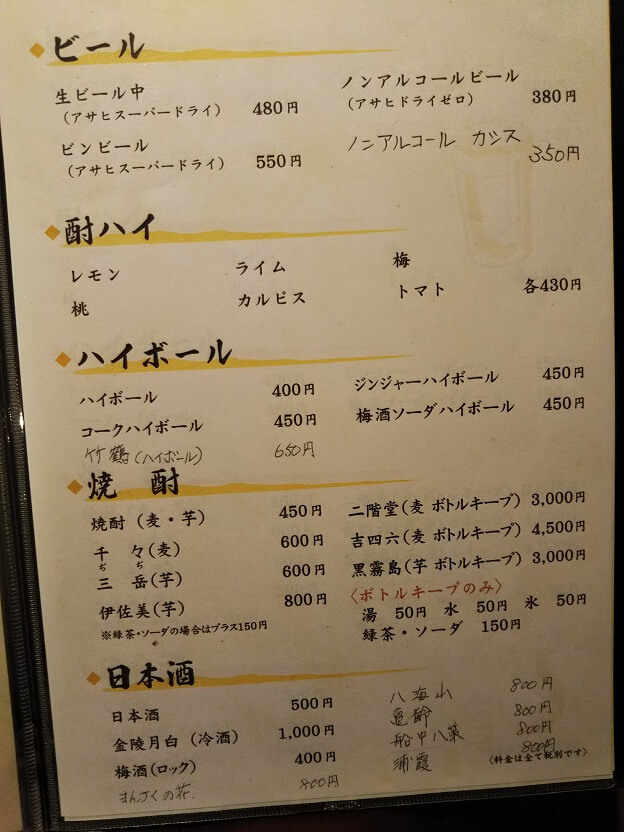 ビール
生ビール中
（アサヒスーパードライ） 480円
ノンアルコールビール
（アサヒドライゼロ） 380円
ビンビール
（アサヒスーパードライ） 550円
ノンアルコール カシス 350円
酎ハイ
レモン ライム 梅
桃 カルピス トマト 各430円
ハイボール
ハイボール 400円 ジンジャーハイボール 450円
コークハイボール 450円 梅酒ソーダハイボール 450円
竹鶴(ハイボール) 650円
焼 酎
焼酎（麦・芋） 450円 二階堂(麦 ボトルキープ) 3,000円
千 々(麦) 600円 吉四六(麦 ボトルキープ) 4,500円
ぢ ぢ
三 岳(芋) 600円 黒霧島(芋 ボトルキープ) 3,000円
伊佐美(芋) 800円
※緑茶・ソーダの場合はプラス150円
〈ボトルキープのみ〉
湯 50円 水 50円 氷 50円
緑茶・ソーダ 150円
日本酒
日本酒 500円
金陵月白（冷酒） 1,000円
梅酒(ロック) 400円
まんさくの花 800円
八海山 800円
亀齢 800円
船中八策 800円
浦霞 800円
〈料金は全て税別です〉